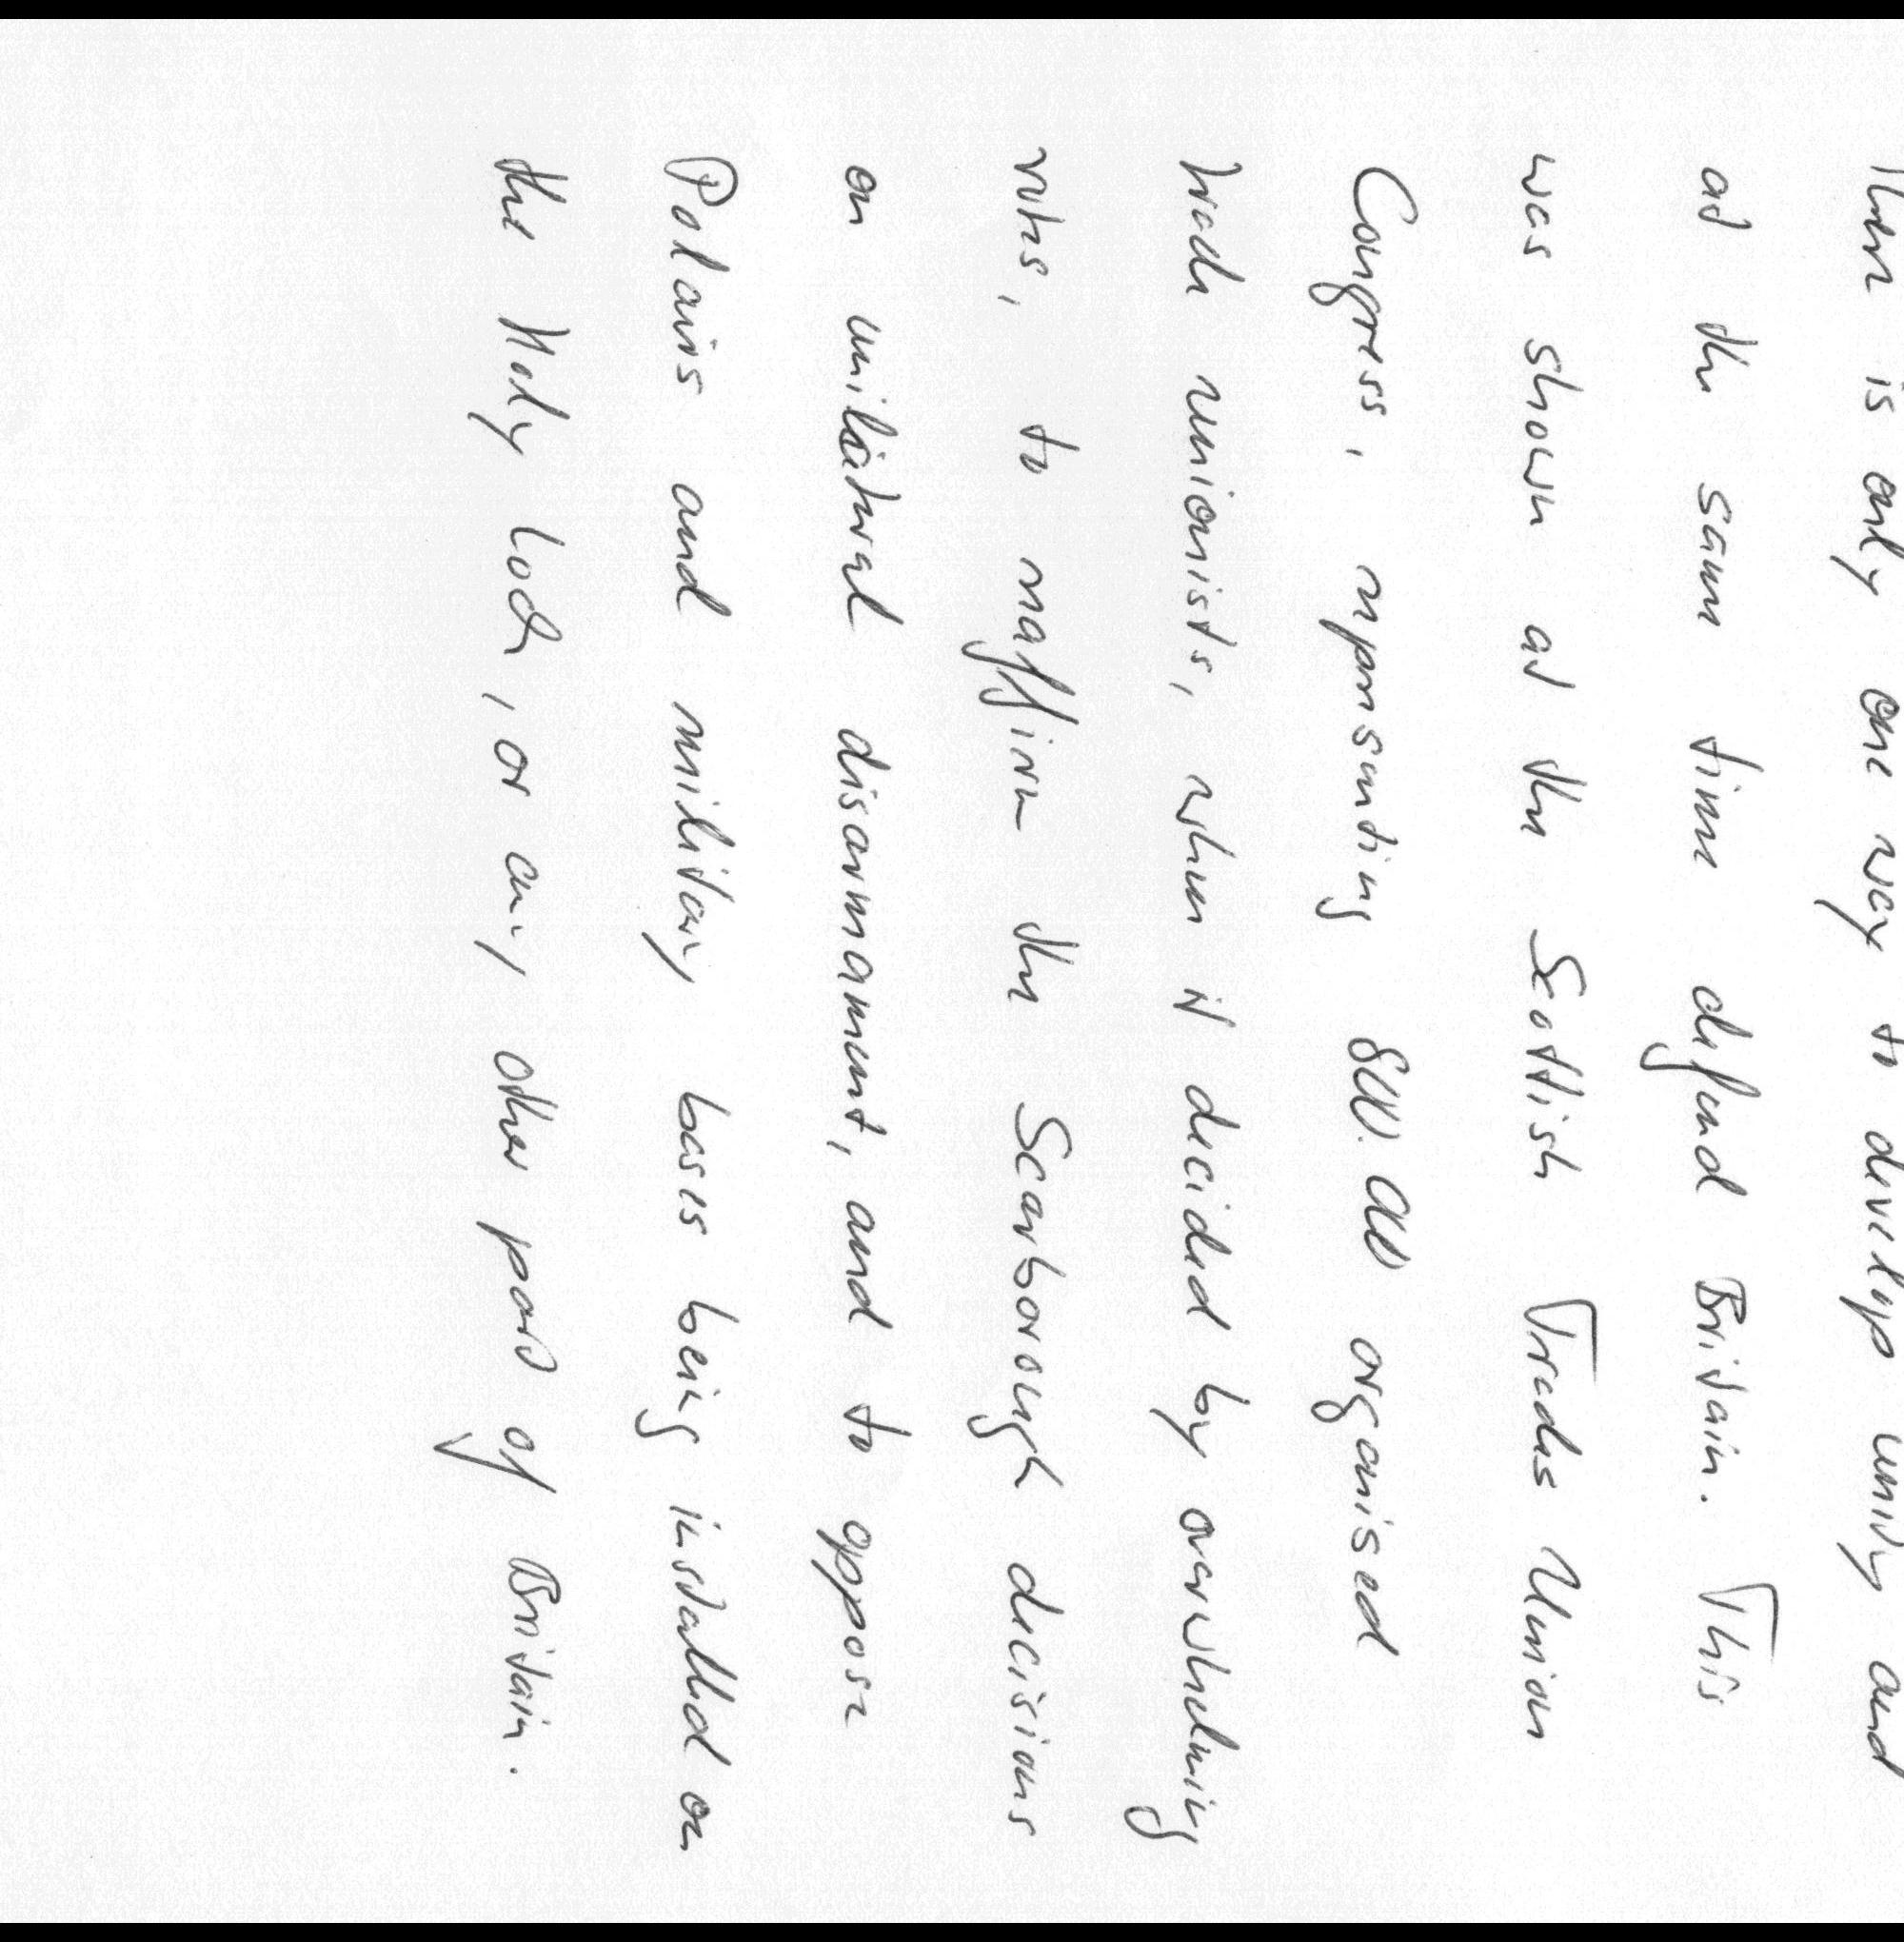 There is only one way to develop unity and
at the same time defend Britain. This
was shown at the Scottish Trades Union
Congress, representing 800.000 organised
trade unionists, when it decided by overwhelming
votes, to reaffirm the Scarborough decisions
on unilateral disarmament, and to oppose
Polaris and military bases being installed on
the Holy Loch, or any other part of Britain.